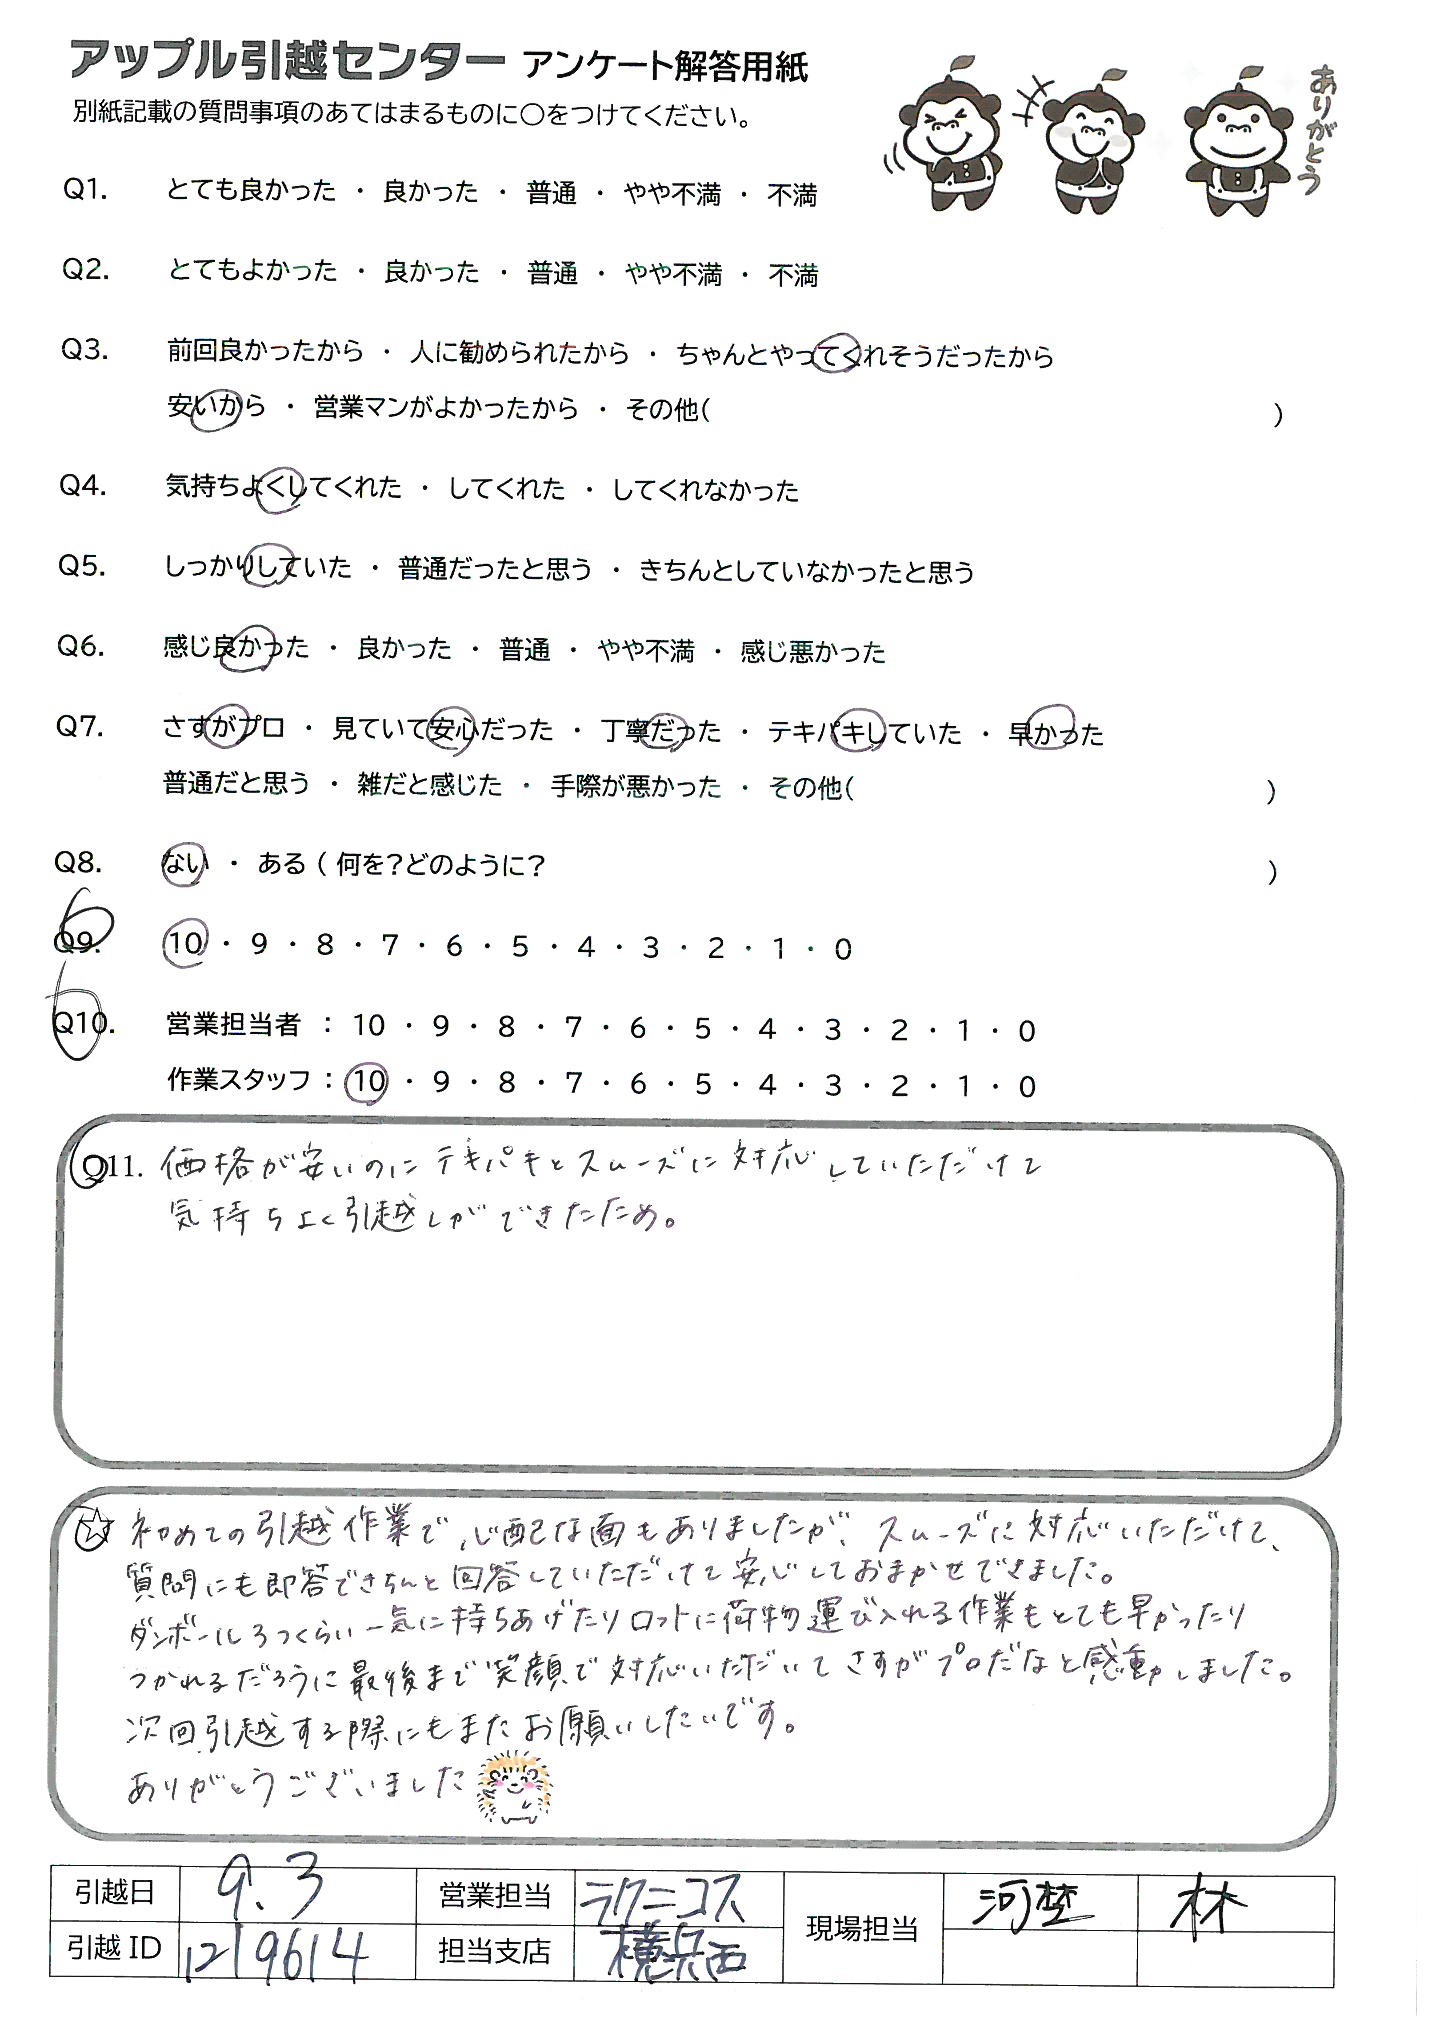 アップル引越センター アンケート解答用紙
別紙記載の質問事項のあてはまるものに○をつけてください。
ありがとう
Q1. とても良かった ・ 良かった ・ 普通 ・ やや不満 ・ 不満
Q2. とてもよかった ・ 良かった ・ 普通 ・ やや不満 ・ 不満
Q3. 前回良かったから ・ 人に勧められたから ・ ちゃんとやってくれそうだったから
安いから ・ 営業マンがよかったから ・ その他( )
Q4. 気持ちよくしてくれた ・ してくれた ・ してくれなかった
Q5. しっかりしていた ・ 普通だったと思う ・ きちんとしていなかったと思う
Q6. 感じ良かった ・ 良かった ・ 普通 ・ やや不満 ・ 感じ悪かった
Q7. さすがプロ ・ 見ていて安心だった ・ 丁寧だった ・ テキパキしていた ・ 早かった
普通だと思う ・ 雑だと感じた ・ 手際が悪かった ・ その他( )
Q8. ない ・ ある ( 何を?どのように? )
Q9. 10 ・ 9 ・ 8 ・ 7 ・ 6 ・ 5 ・ 4 ・ 3 ・ 2 ・ 1 ・ 0
Q10. 営業担当者 : 10 ・ 9 ・ 8 ・ 7 ・ 6 ・ 5 ・ 4 ・ 3 ・ 2 ・ 1 ・ 0
作業スタッフ : 10 ・ 9 ・ 8 ・ 7 ・ 6 ・ 5 ・ 4 ・ 3 ・ 2 ・ 1 ・ 0
Q11. 価格が安いのにテキパキとスムーズに対応していただけて
気持ちよく引越しができたため。
☆ 初めての引越作業で、心配な面もありましたが、スムーズに対応いただけて、
質問にも即答できちんと回答していただけて安心しておまかせできました。
ダンボール3つくらい一気に持ちあげたりロフトに荷物運び入れる作業もとても早かったり
つかれるだろうに最後まで笑顔で対応いただいてさすがプロだなと感動しました。
次回引越する際にもまたお願いしたいです。
ありがとうございました
引越日 9.3 営業担当 ラクニコス 現場担当 河埜 林
引越ID 1219614 担当支店 横浜西